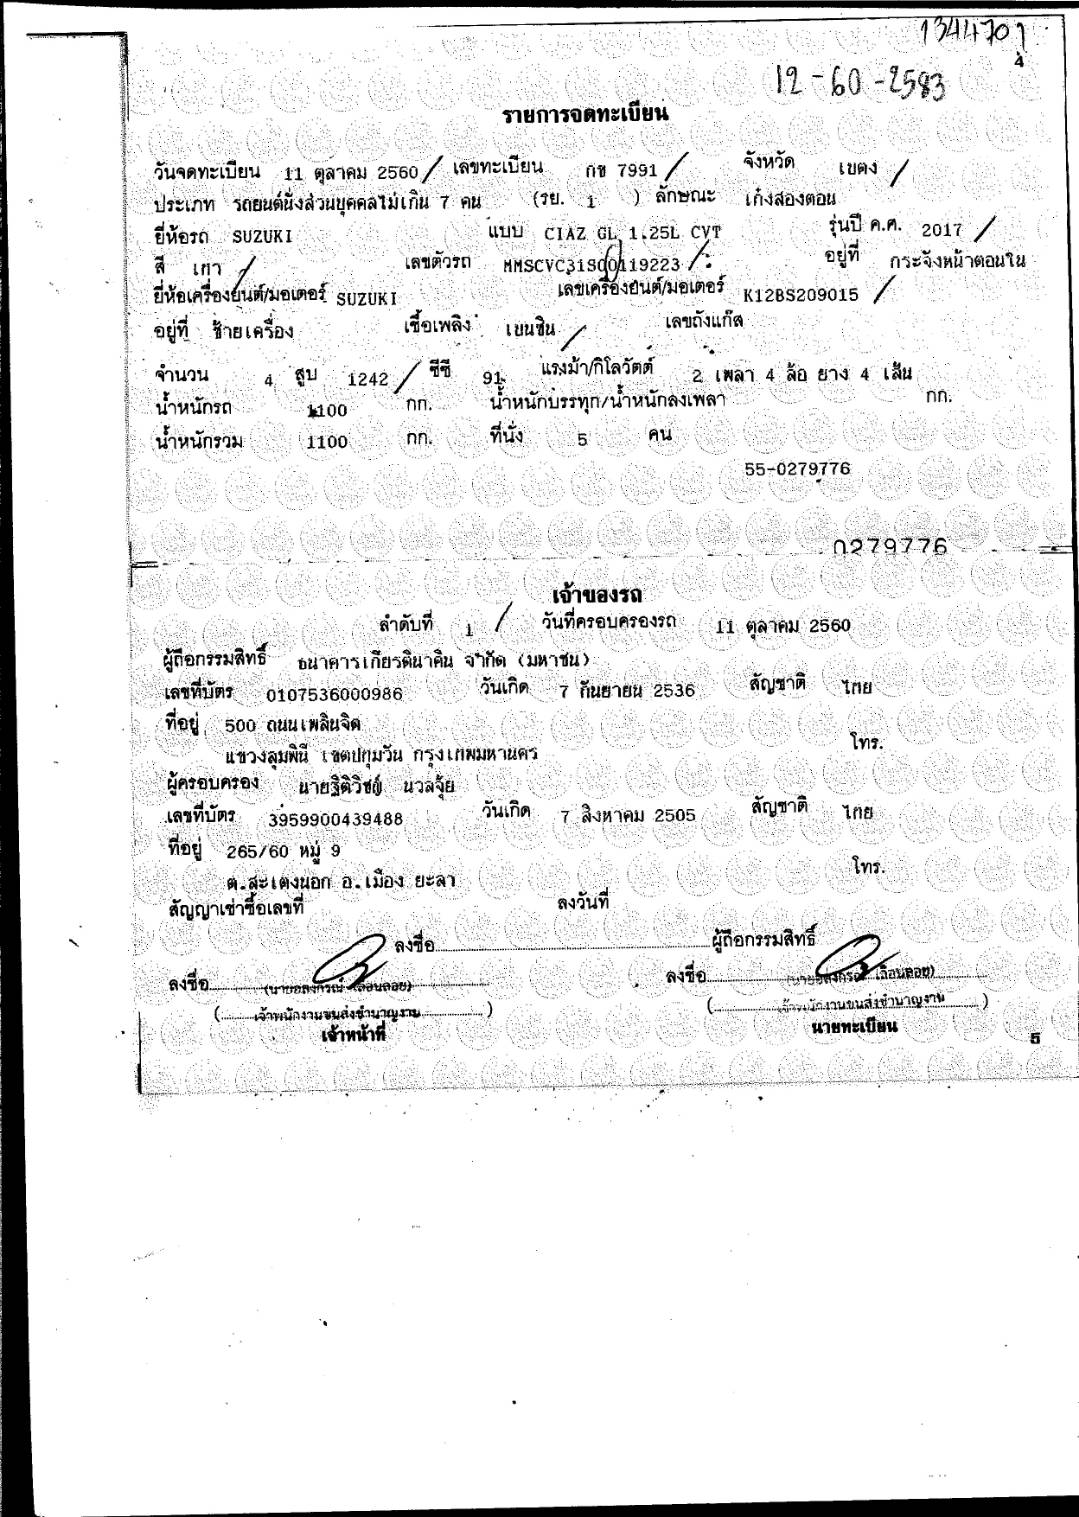 1344701
4
12-60-2583
รายการจดทะเบียน
วันจดทะเบียน 11 ตุลาคม 2560 เลขทะเบียน กข 7991 จังหวัด เบตง
ประเภท รถยนต์นั่งส่วนบุคคลไม่เกิน 7 คน (รย. 1 ) ลักษณะ เก๋งสองตอน
ยี่ห้อรถ SUZUKI แบบ CIAZ GL 1.25L CVT รุ่นปี ค.ศ. 2017
สี เทา เลขตัวรถ MMSCVC31S00119223 อยู่ที่ กระจังหน้าตอนใน
ยี่ห้อเครื่องยนต์/มอเตอร์ SUZUKI เลขเครื่องยนต์/มอเตอร์ K12BS209015
อยู่ที่ ซ้ายเครื่อง เชื้อเพลิง เบนซิน เลขถังแก๊ส
จำนวน 4 สูบ 1242 ซีซี 91 แรงม้า/กิโลวัตต์ 2 เพลา 4 ล้อ ยาง 4 เส้น
น้ำหนักรถ 1100 กก. น้ำหนักบรรทุก/น้ำหนักลงเพลา กก.
น้ำหนักรวม 1100 กก. ที่นั่ง 5 คน
55-0279776
0279776
เจ้าของรถ
ลำดับที่ 1 วันที่ครอบครองรถ 11 ตุลาคม 2560
ผู้ถือกรรมสิทธิ์ ธนาคารเกียรตินาคิน จำกัด (มหาชน)
เลขที่บัตร 0107536000986 วันเกิด 7 กันยายน 2536 สัญชาติ ไทย
ที่อยู่ 500 ถนนเพลินจิต
แขวงลุมพินี เขตปทุมวัน กรุงเทพมหานคร โทร.
ผู้ครอบครอง นายฐิติวิชญ์ นวลจุ้ย
เลขที่บัตร 3959900439488 วันเกิด 7 สิงหาคม 2505 สัญชาติ ไทย
ที่อยู่ 265/60 หมู่ 9
ต.สะเตงนอก อ.เมือง ยะลา โทร.
สัญญาเช่าซื้อเลขที่ ลงวันที่
ลงชื่อ ผู้ถือกรรมสิทธิ์
ลงชื่อ ลงชื่อ
(เจ้าพนักงานขนส่งชำนาญงาน) (เจ้าพนักงานขนส่งชำนาญงาน)
เจ้าหน้าที่ นายทะเบียน
5